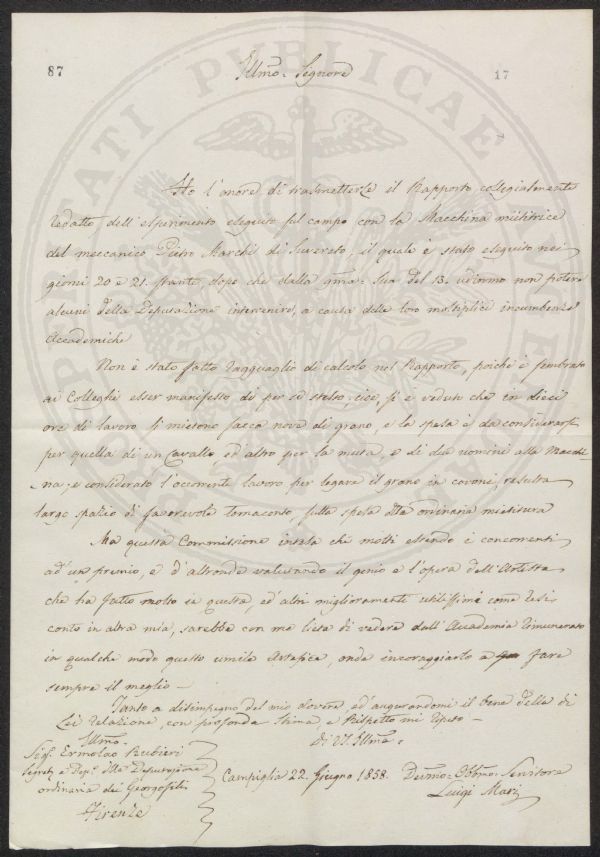 87
17
Illmo. Signore
Ho l'onore di trasmetterle il Rapporto collegialmente
redatto dell'esperimento eseguito sul campo con la Macchina mietitrice
del meccanico Pietro Marchi di Suvereto, il quale è stato eseguito nei
giorni 20 e 21. stante, dopo che dalla sua del 13. udimmo non potere
alcuni della Deputazione intervenire, a causa delle loro moltiplici incumbenze
Accademiche
Non è stato fatto ragguaglio di calcolo nel Rapporto, poichè è sembrato
ai Colleghi esser manifesto di per se stesso, cioè, si è veduto che in dieci
ore di lavoro si mietono sacca nove di grano, e la spesa è da considerarsi
per quella di un Cavallo ed altro per la muta, e di due uomini alla Macchi-
na; e considerato l'occorrente lavoro per legare il grano in covoni, resulta
largo spazio di favorevole tornaconto, sulla spesa alla ordinaria mietitura
Ma questa Commissione intesa che molti essendo i concorrenti
ad un premio, e d'altronde valutando il genio e l'opera dell'Artista
che ha fatto molto in questa, ed altri miglioramenti utilissimi come resi
conto in altra mia, sarebbe con me lieta di vedere dall'Accademia rimunerato
in qualche modo questo umile Artefice, onde incoraggiarlo a fare
sempre il meglio –
Tanto a disimpegno del mio dovere, ed augurandomi il bene della di
Lei relazione, con profonda stima e Rispetto mi ripeto –
Di V. S. Illma.
Illmo.
Sigr. Ermolao Rubieri
Segret. e Dep. alla Deputazione
ordinaria dei Georgofili
Firenze
Campiglia 22. Giugno 1858.
Devmo. Obbmo. Servitore
Luigi Marzi
PROSPERITATI PUBLICAE AUGENDAE